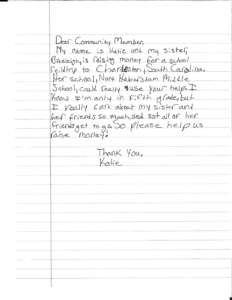 Dear Community Member,
My name is Katie and my sister,
Baeleigh, is raising money for a school
fieldtrip to Charleston, South Carolina.
Her school, North Habersham Middle
School, could really use your help. I
know I'm only in fifth grade, but
I really care about my sister and
her friends so much, and not all of her
friends get to go. So please help us
raise money!
Thank You,
Katie